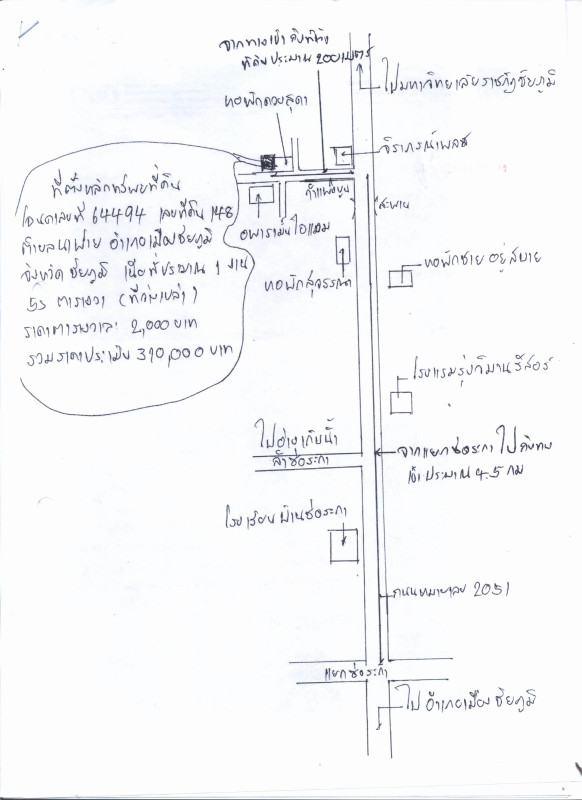 จากทางเข้า ถึงที่ตั้ง
ที่ดิน ประมาณ 200 เมตร
ไปมหาวิทยาลัยราชภัฏชัยภูมิ
หอพักดวงสุดา
จิราภรณ์เพลซ
ที่ตั้งหลักทรัพย์ที่ดิน
โฉนดเลขที่ 64494 เลขที่ดิน 148
ตำบลนาฝาย อำเภอเมืองชัยภูมิ
จังหวัด ชัยภูมิ เนื้อที่ประมาณ 1 งาน
55 ตารางวา (ที่ว่างเปล่า)
ราคาตารางวาละ 2,000 บาท
รวมราคาประเมิน 310,000 บาท
กำแพงปูน
สะพาน
หอพักสุวรรณา
หอพักชาย อยู่สบาย
โรงแรมรุ่งวิมานรีสอร์
ไปอ่างเก็บน้ำ
ลำช่อระกา
จากแยกช่อระกา ไปถึงทาง
เข้า ประมาณ 4.5 กม
โรงเรียนบ้านช่อระกา
ถนนหมายเลข 2051
แยกช่อระกา
ไป อำเภอเมืองชัยภูมิ